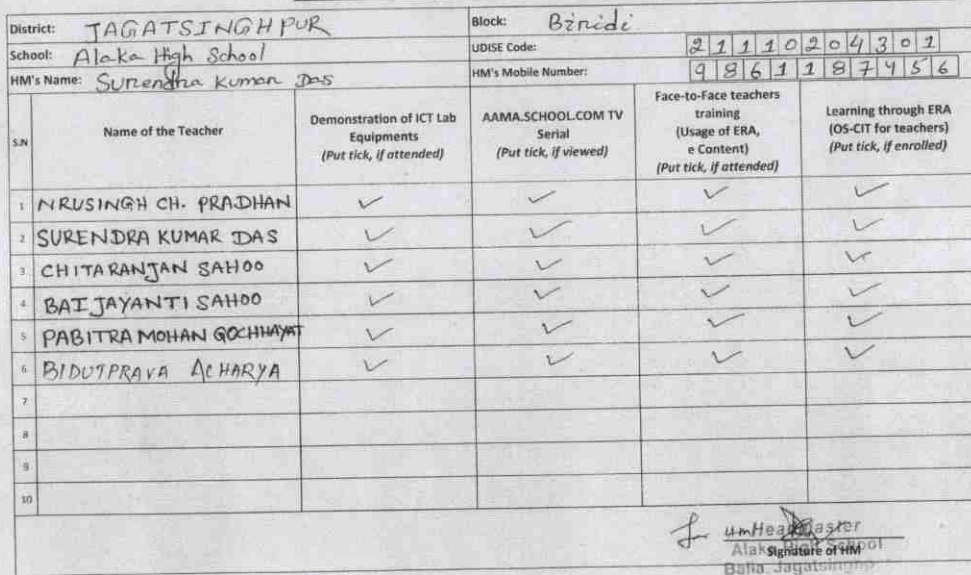 District: JAGATSINGHPUR Block: Biridi
School: Alaka High School UDISE Code: 21110204301
HM's Name: Surendra Kumar Das HM's Mobile Number: 9861187456
S.N Name of the Teacher Demonstration of ICT Lab Equipments (Put tick, if attended) AAMA.SCHOOL.COM TV Serial (Put tick, if viewed) Face-to-Face teachers training (Usage of ERA, e Content) (Put tick, if attended) Learning through ERA (OS-CIT for teachers) (Put tick, if enrolled)
1 NRUSINGH CH. PRADHAN ✓ ✓ ✓ ✓
2 SURENDRA KUMAR DAS ✓ ✓ ✓ ✓
3 CHITARANJAN SAHOO ✓ ✓ ✓ ✓
4 BAIJAYANTI SAHOO ✓ ✓ ✓ ✓
5 PABITRA MOHAN GOCHHAYAT ✓ ✓ ✓ ✓
6 BIDUTPRAVA ACHARYA ✓ ✓ ✓ ✓
7
8
9
10
Headmaster
Alaka High School
Signature of HM